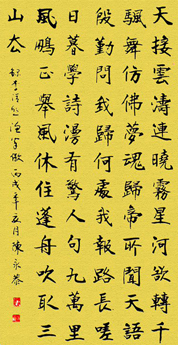 天接雲濤連曉霧星河欲轉千
颿舞仿佛夢魂歸帝所聞天語
殷勤問我歸何處我報路長嗟
日暮學詩漫有驚人句九萬里
風鵬正舉風休住蓬舟吹取三
山去
李清照漁家傲丙戌年五月陳永恭